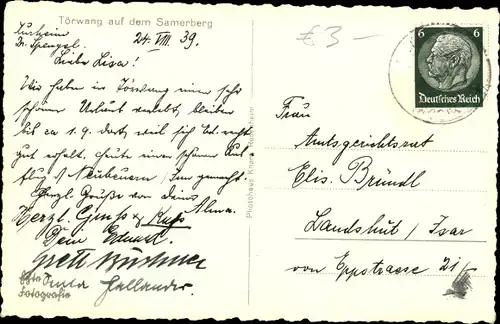 Törwang auf dem Samerberg
Kurheim
Dr. Spengel.
24. VIII 39.
Liebe Lisa!
Wir haben in Törwang einen sehr
schönen Urlaub verlebt, bleiben
bis ca 1. 9. dort, weil sich Ed. recht
gut erholt, heute einen schönen Aus
flug n. Neubeuern / Inn gemacht.
Herzl. Grüße von deiner
Alma.
Herzl. Gruss & Kuss
Dein Eduard.
Grett Büchner
Hollander
Foto
Fotografie
Photohaus Rosenheim
£ 3 –
6 6
Deutsches Reich
Frau
Amtsgerichtsrat
Elis. Bründl
Landshut / Isar
von Eppstrasse 21/